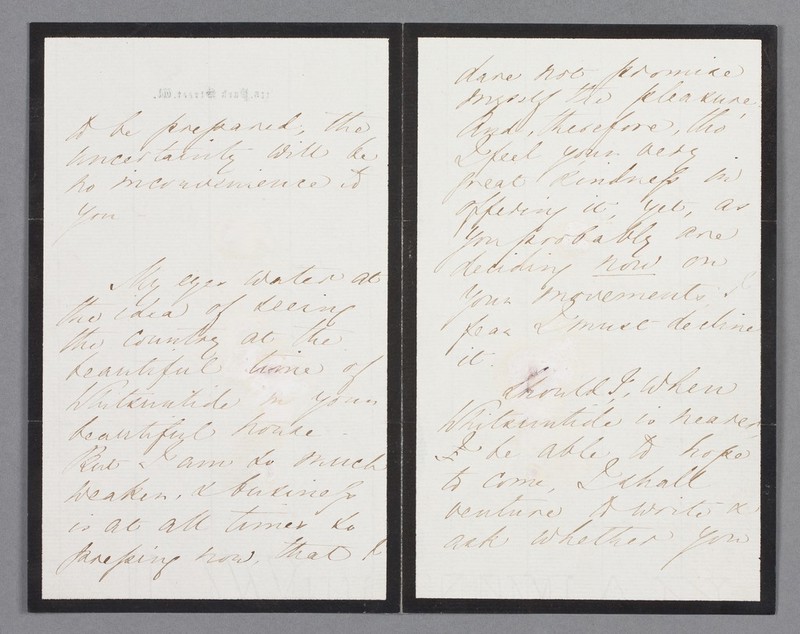 to be prepared, the
uncertainty will be
no inconvenience to
you
My eyes water at
the idea of seeing
the country at the
beautiful time of
Whitsuntide in your
beautiful house.
But I am so much
weaker, & business
is at all times so
pressing now, that I
dare not promise
myself the pleasure,
And, therefore, tho'
I feel your very
great kindness in
offering it, yet, as
you probably are
deciding now on
your movements, I
fear I must decline
it.
Should I, when
Whitsuntide is nearer,
be able to hope
to come, I shall
venture to write &
ask whether you